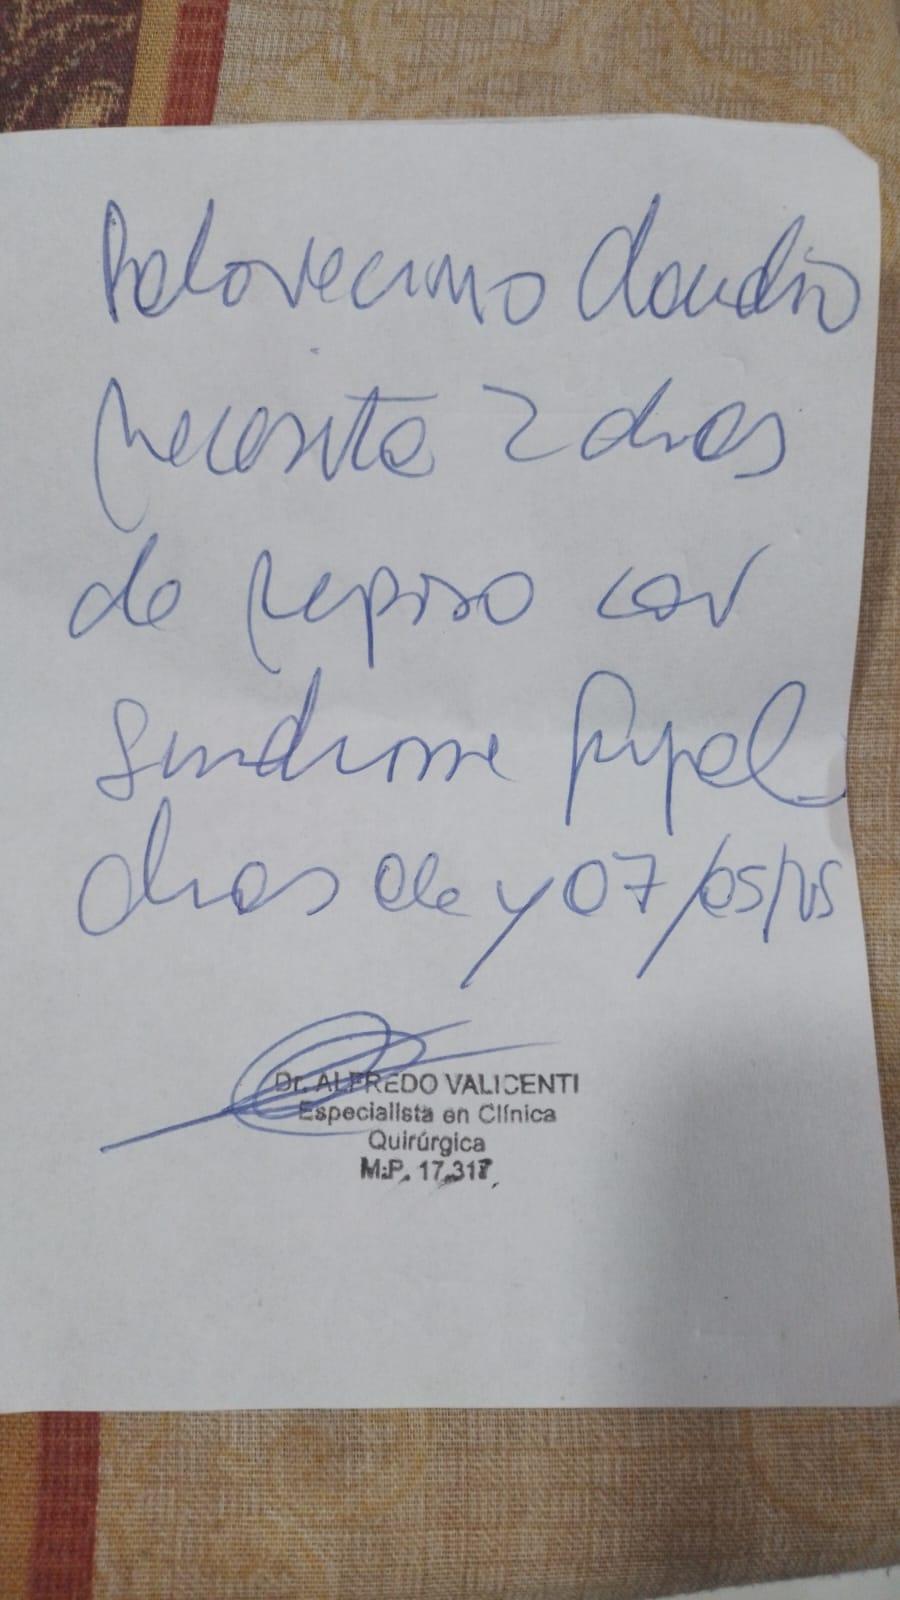 Claudio
necesita 2 dias
de reposo con
sindrome gripal
dias de y 07/05/25
Dr. ALFREDO VALICENTI
Especialista en Clínica
Quirúrgica
M.P. 17.317